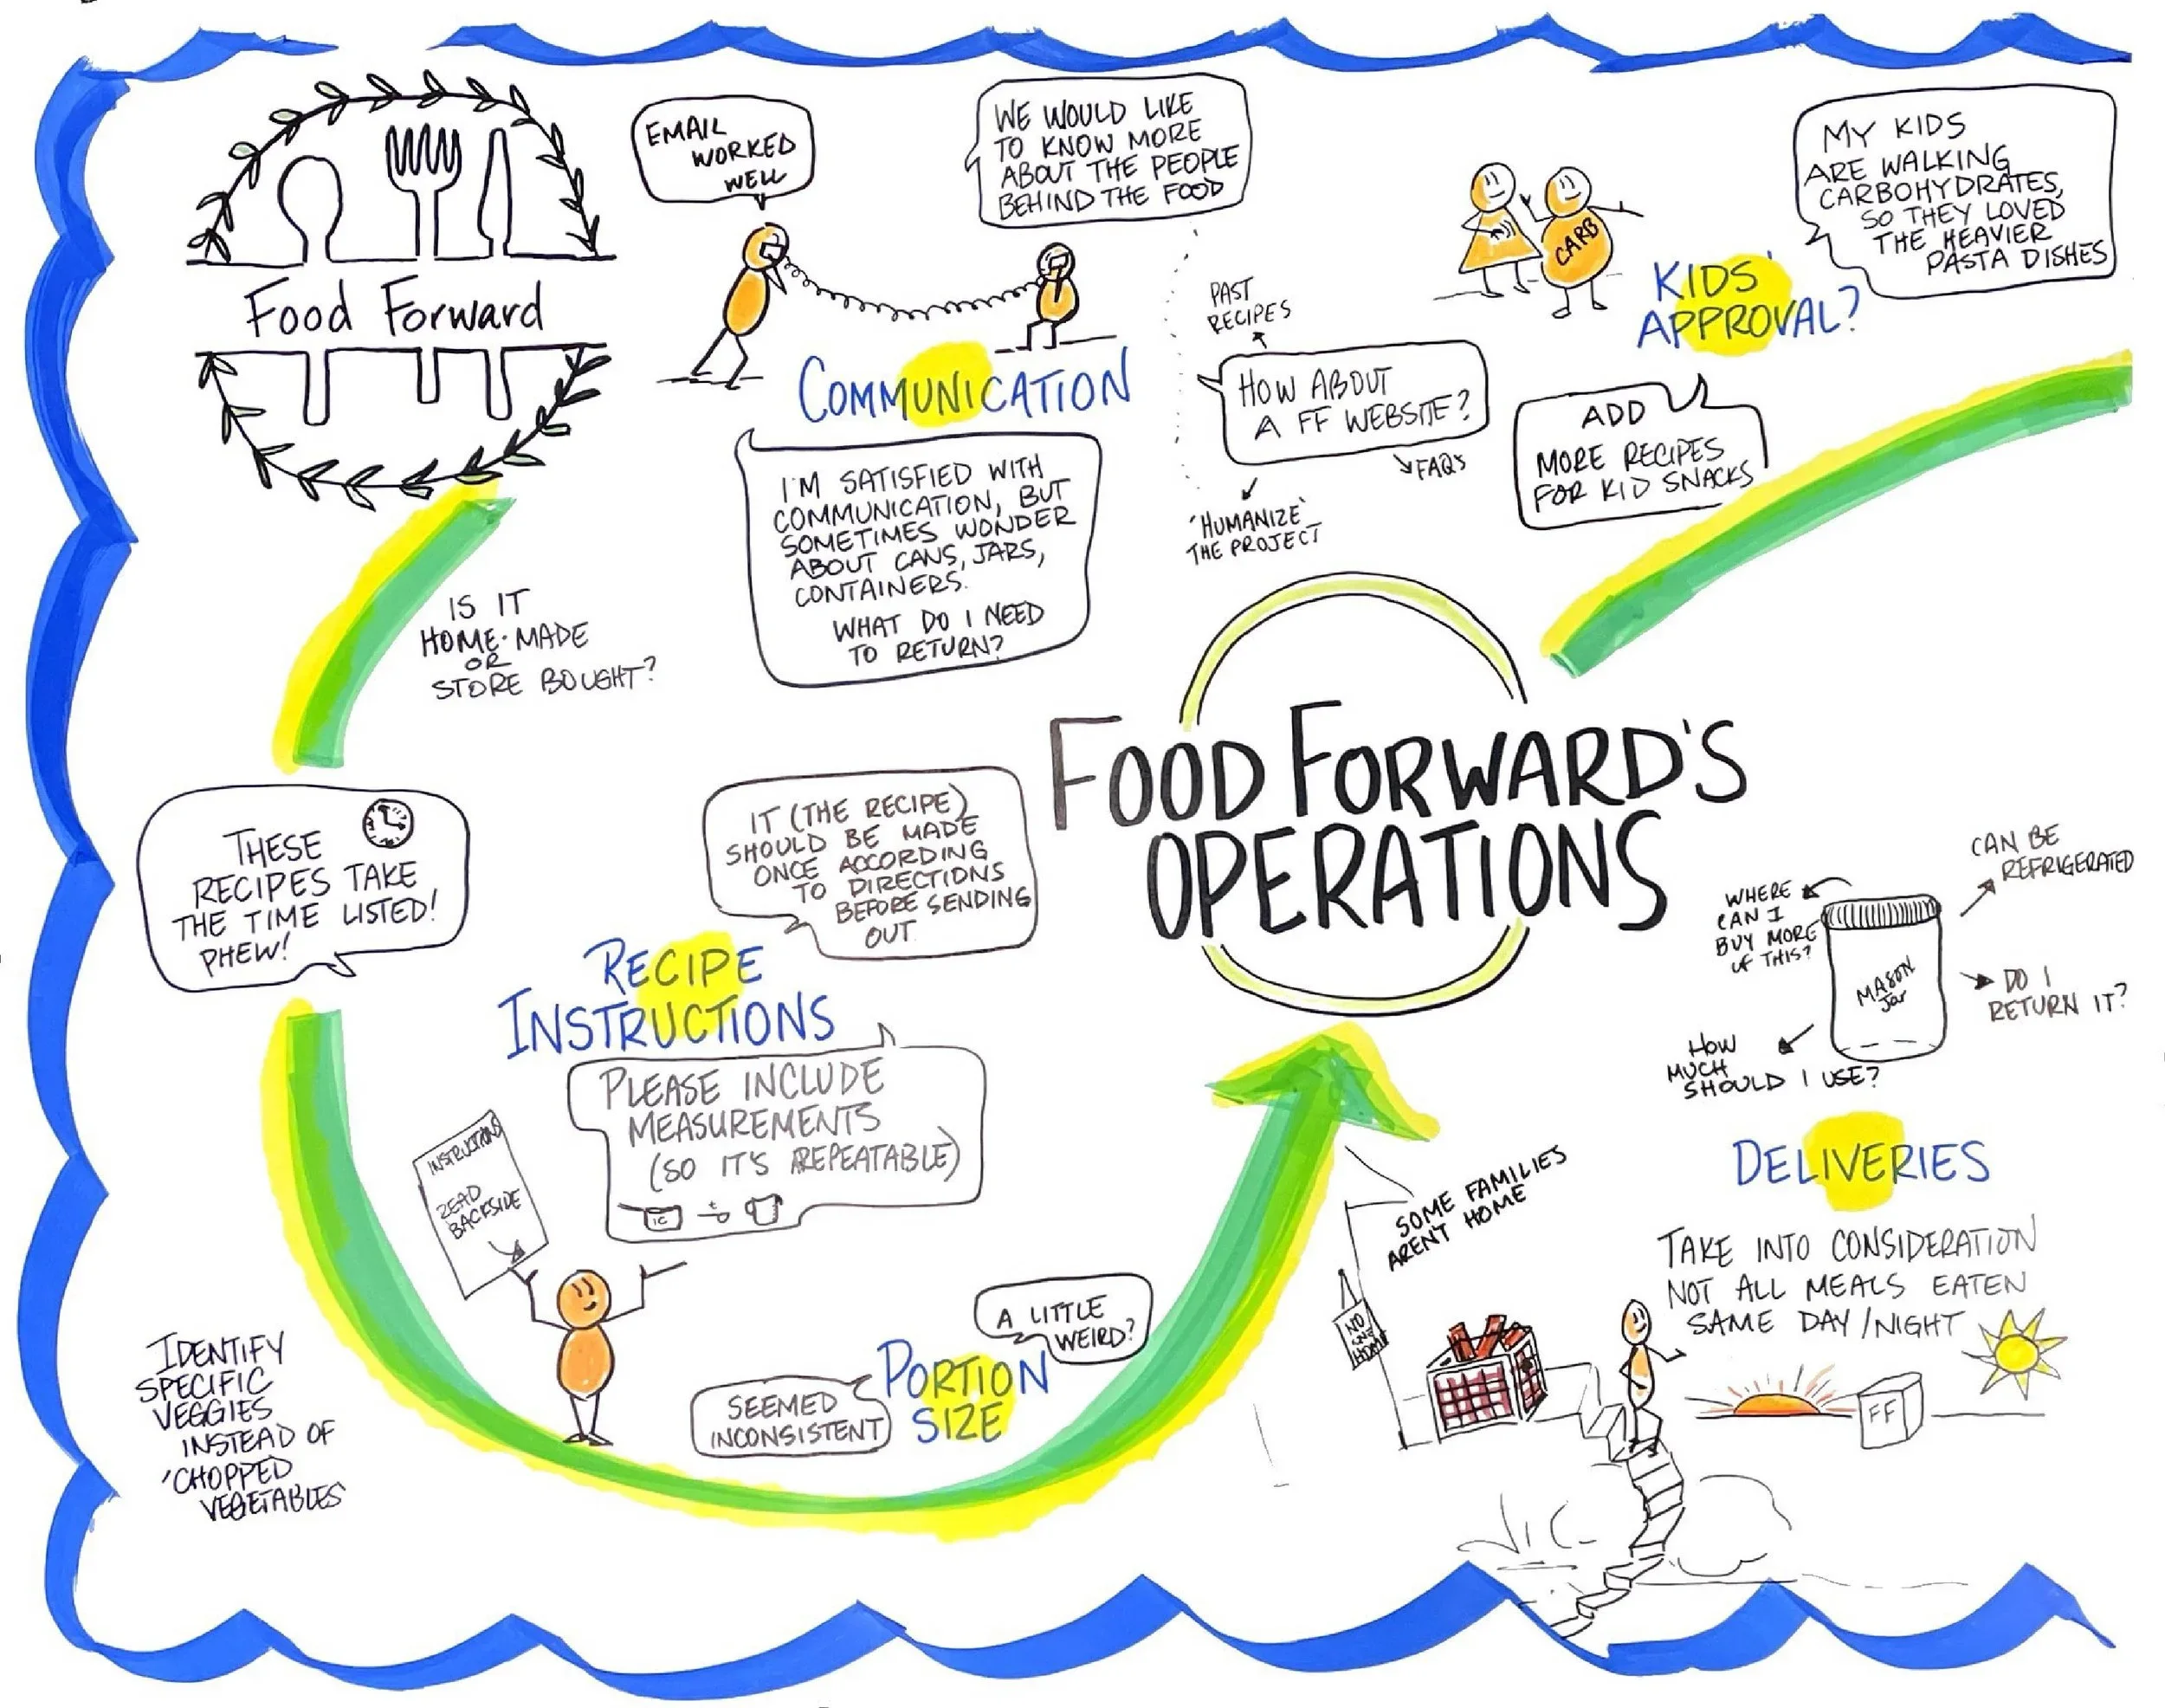 Food Forward
EMAIL
WORKED
WELL
WE WOULD LIKE
TO KNOW MORE
ABOUT THE PEOPLE
BEHIND THE FOOD
COMMUNICATION
I'M SATISFIED WITH
COMMUNICATION, BUT
SOMETIMES WONDER
ABOUT CANS, JARS,
CONTAINERS.
WHAT DO I NEED
TO RETURN?
PAST
RECIPES
HOW ABOUT
A FF WEBSITE?
FAQS
'HUMANIZE'
THE PROJECT
CARB
KIDS'
APPROVAL?
MY KIDS
ARE WALKING
CARBOHYDRATES,
SO THEY LOVED
THE HEAVIER
PASTA DISHES
ADD
MORE RECIPES
FOR KID SNACKS
IS IT
HOME-MADE
OR
STORE BOUGHT?
FOOD FORWARD'S
OPERATIONS
THESE
RECIPES TAKE
THE TIME LISTED!
PHEW!
IT (THE RECIPE)
SHOULD BE MADE
ONCE ACCORDING
TO DIRECTIONS
BEFORE SENDING
OUT
RECIPE
INSTRUCTIONS
PLEASE INCLUDE
MEASUREMENTS
(SO IT'S REPEATABLE)
1C
t
INSTRUCTIONS
READ
BACKSIDE
IDENTIFY
SPECIFIC
VEGGIES
INSTEAD OF
'CHOPPED
VEGETABLES'
PORTION
SIZE
SEEMED
INCONSISTENT
A LITTLE
WEIRD?
WHERE
CAN I
BUY MORE
OF THIS?
CAN BE
REFRIGERATED
MASON
Jar
DO I
RETURN IT?
HOW
MUCH
SHOULD I USE?
DELIVERIES
SOME FAMILIES
AREN'T HOME
NO
ONE
HOME
TAKE INTO CONSIDERATION
NOT ALL MEALS EATEN
SAME DAY/NIGHT
FF